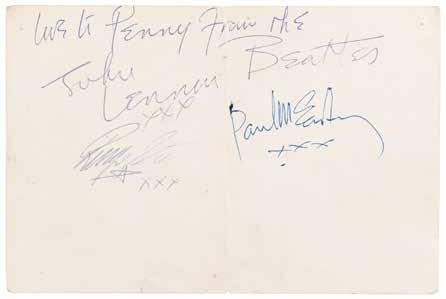 love to Penny From the
Beatles
John
Lennon
xxx
Paul McCartney
xxx
Ringo Starr
xxx